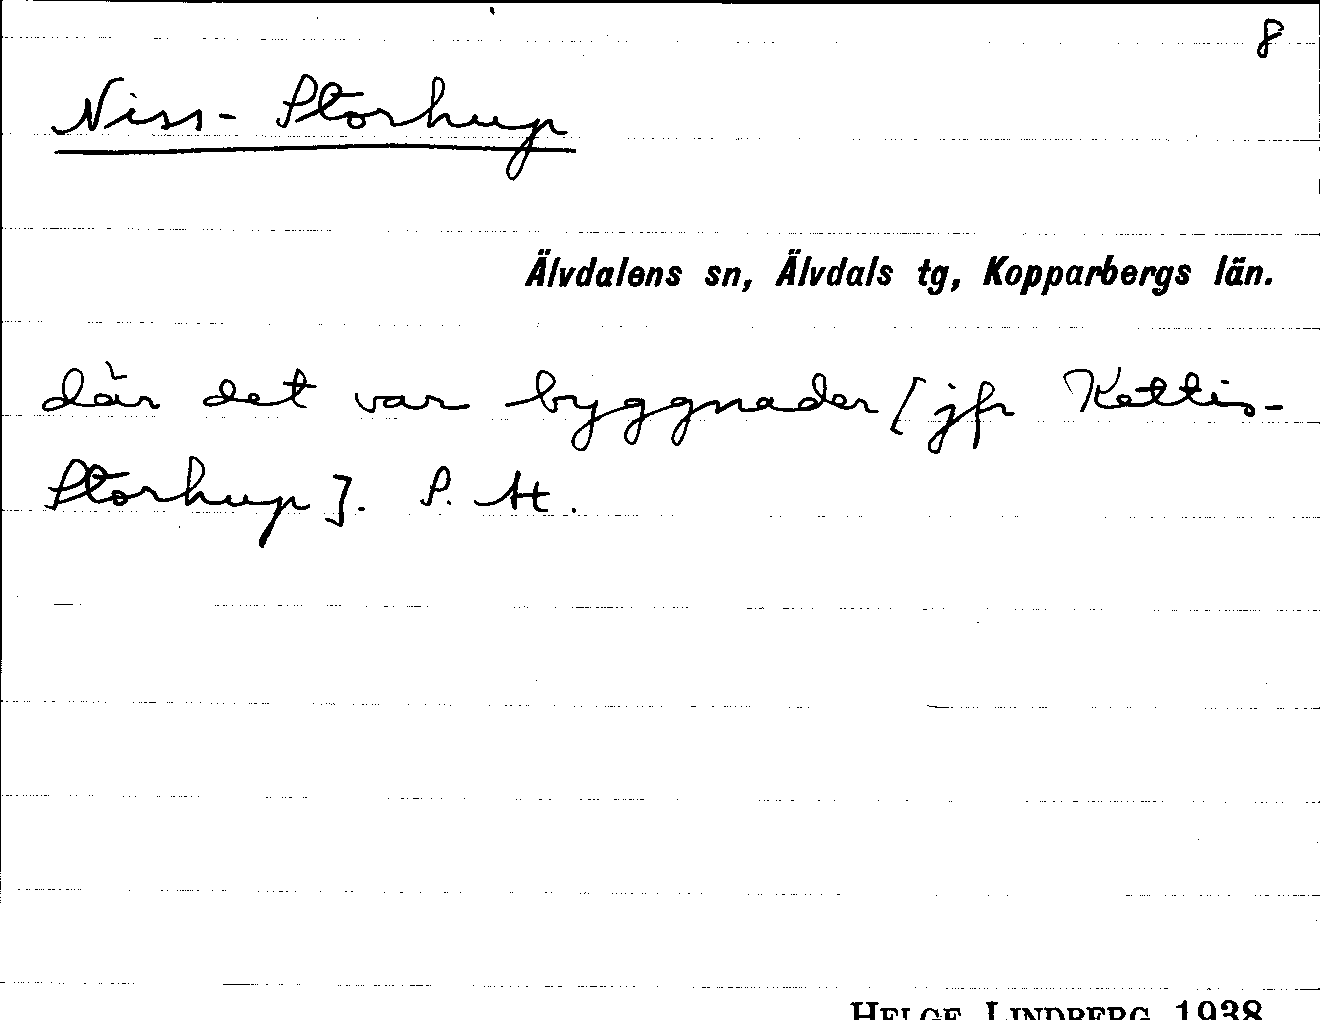 8
Niss-Storhup
Älvdalens sn, Älvdals tg, Kopparbergs län.
där det var byggnader [jfr Kettis-
Storhup]. S. H.
HELGE LINDBERG 1938